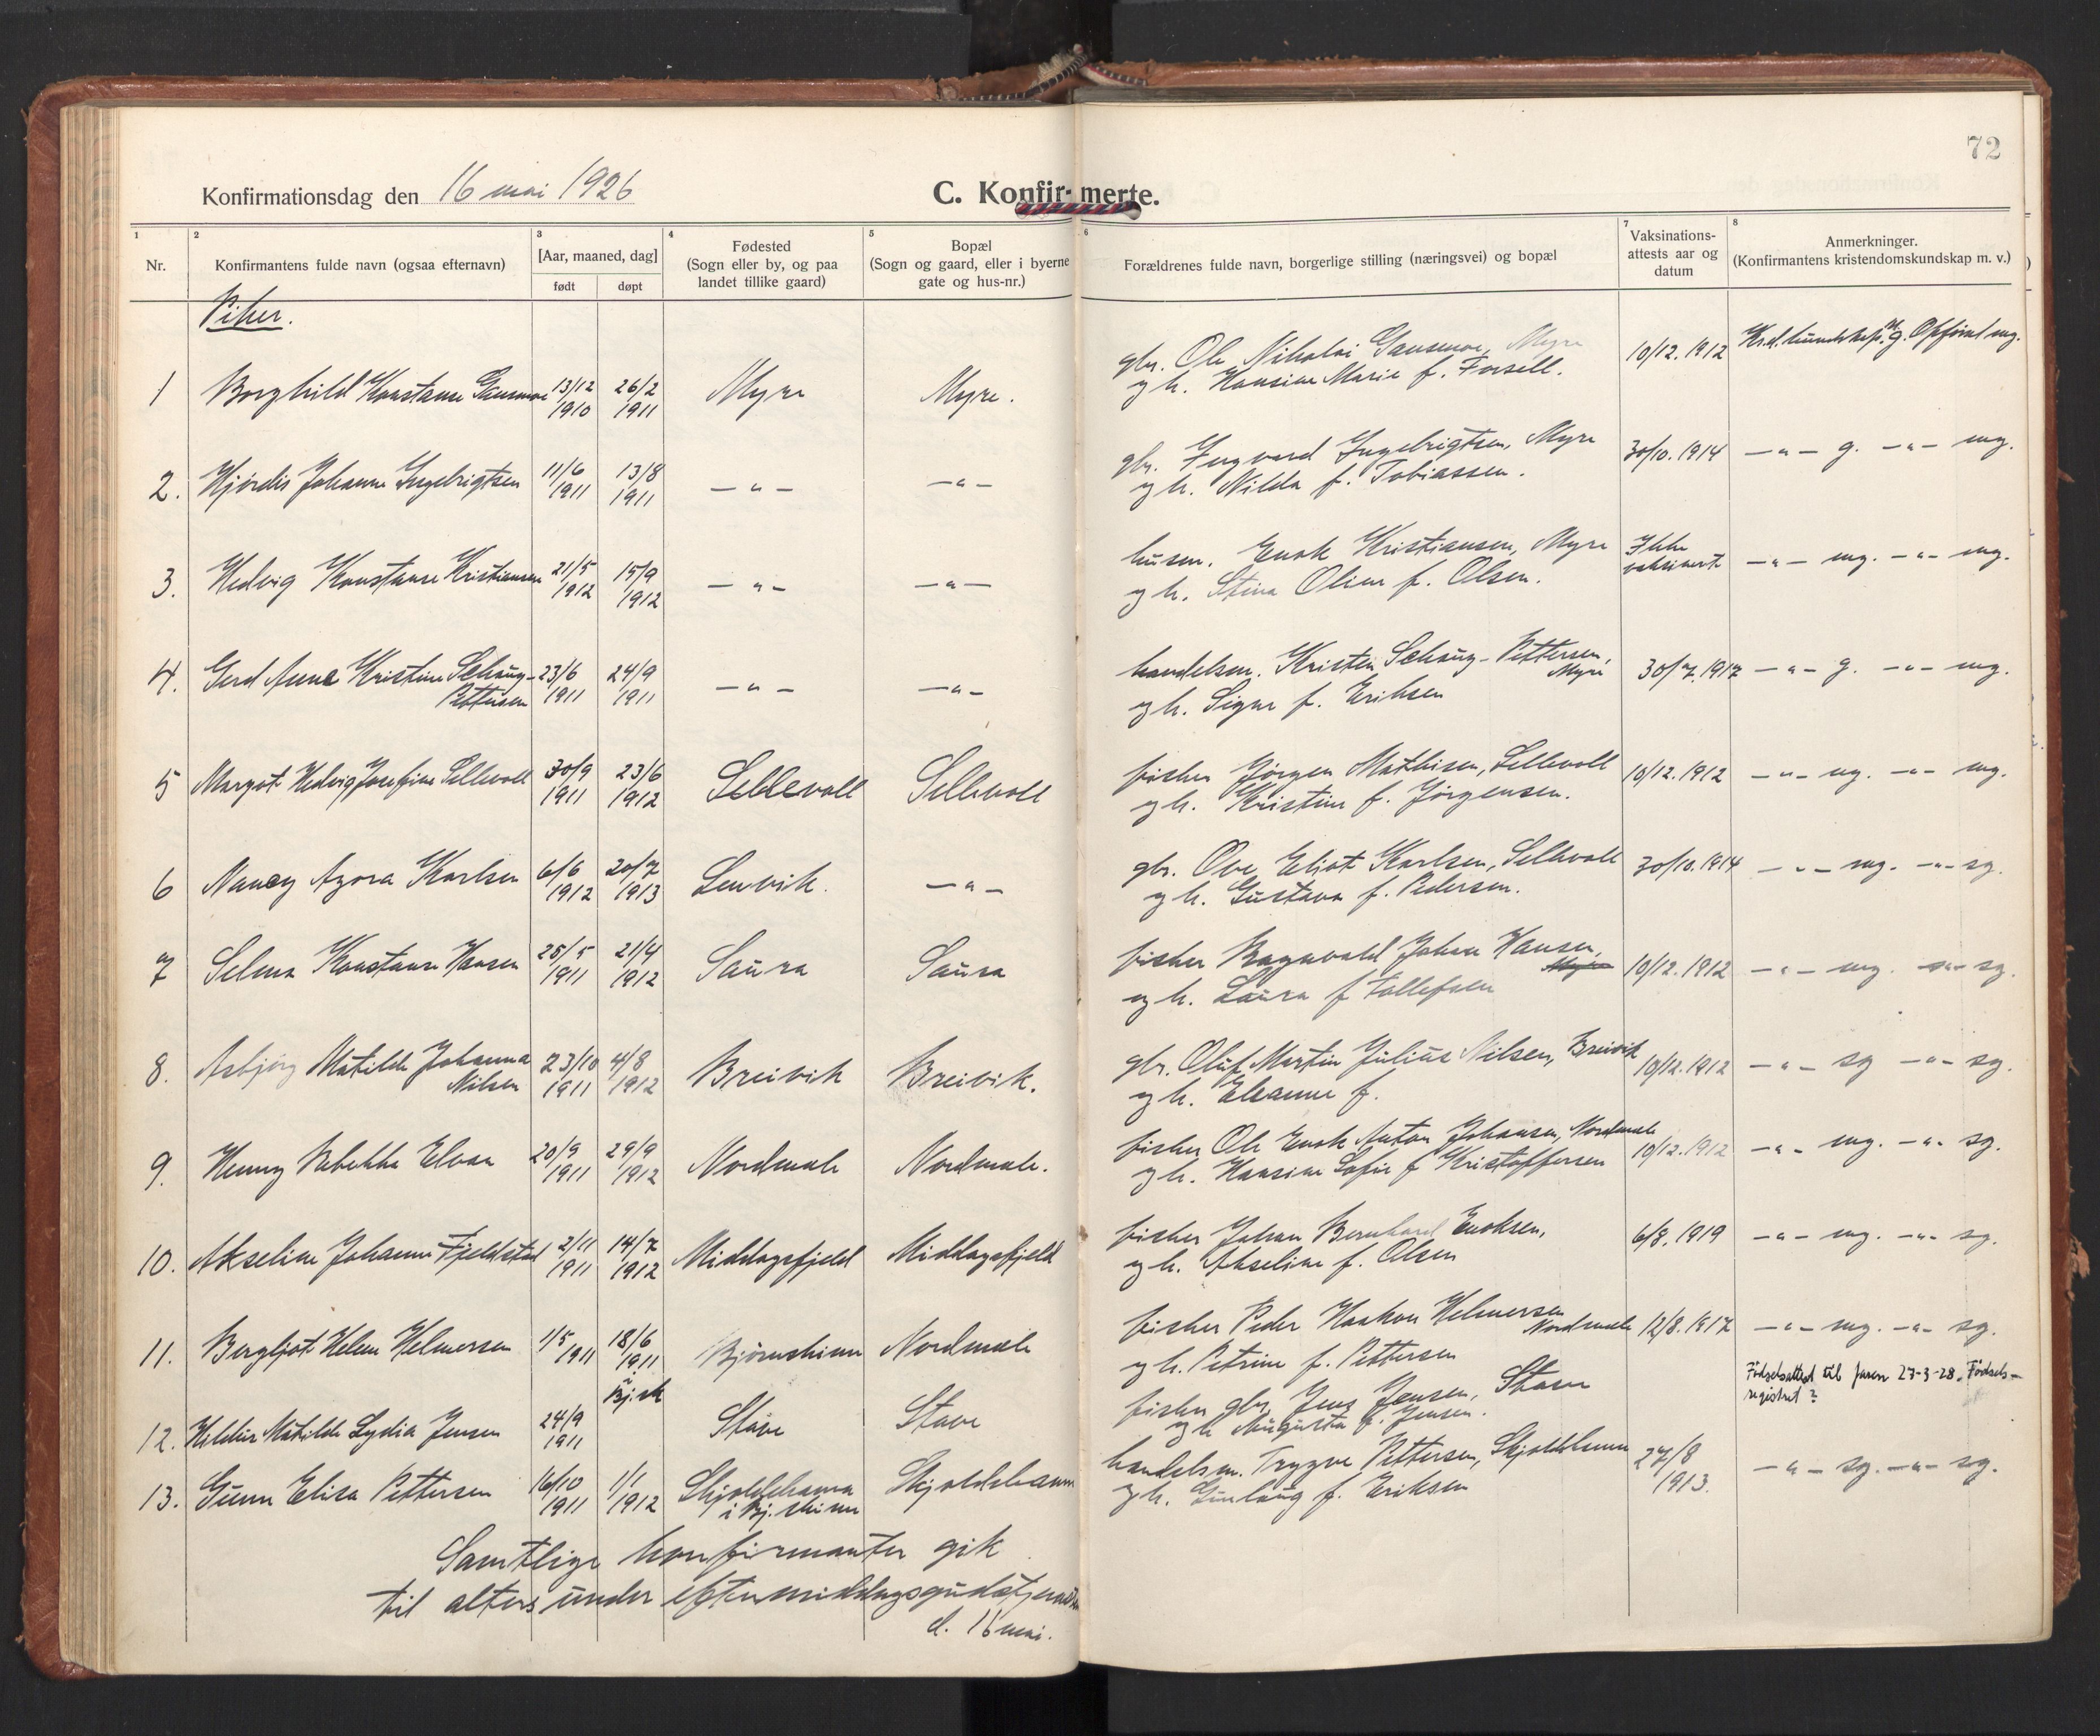 72
Konfirmationsdag den 16 mai 1926
C. Konfirmerte.
1 2 3 4 5 6 7 8
Nr.
Konfirmantens fulde navn (ogsaa efternavn)
[Aar, maaned, dag]
født døpt
Fødested
(Sogn eller by, og paa
landet tillike gaard)
Bopæl
(Sogn og gaard, eller i byerne
gate og hus-nr.)
Forældrenes fulde navn, borgerlige stilling (næringsvei) og bopæl
Vaksinations-
attests aar og
datum
Anmerkninger.
(Konfirmantens kristendomskundskap m. v.)
Piker.
gbr. Ole Nikolai Gausmoe, Myre 10/12.1912 Krd.kundskap. mg. Opførsel mg.
1 Borghild Konstanse Gausmoe 13/12 1910 26/2 1911 Myre Myre.
og h. Hansine Marie f. Forsell.
gbr. Ingvard Ingebrigtsen, Myre 30/10.1914 —"— g. —"— mg.
2. Hjørdis Johanne Ingebrigtsen 11/6 1911 13/8 1911 —"— —"—
og h. Hilda f. Tobiassen.
husm. Enok Kristiansen, Myre Ikke vaksinert —"— mg. —"— mg.
3. Hedvig Konstanse Kristiansen 21/5 1912 15/9 1912 —"— —"—
og h. Stina Oline f. Olsen.
handelsm. Kristen Schaug-Pettersen, Myre 30/7.1917 —"— g. —"— mg.
4. Gerd Anna Kristine Schaug-Pettersen 23/6 1911 24/9 1911 —"— —"—
og h. Signe f. Eriksen
fisker Jørgen Mathisen, Sellevoll 10/12.1912 —"— mg. —"— mg.
5 Margot Hedvig Josefine Sellevoll 30/9 1911 23/6 1912 Sellevoll Sellevoll
og h. Kristine f. Jørgensen.
gbr. Ove Eliot Karlsen, Sellevoll 30/10.1914 —"— mg. —"— sg.
6 Nancy Azora Karlsen 6/6 1912 20/7 1913 Lenvik. —"—
og h. Gustava f. Pedersen.
fisker Ragnvald Johan Hansen, 10/12.1912 —"— mg. —"— sg.
7 Selma Konstanse Hansen 25/5 1911 21/4 1912 Saura Saura
og h. Laura f Tollefsen
gbr. Oluf Martin Julius Nilsen, Breivik 10/12.1912 —"— sg —"— sg.
8. Asbjørg Matilde Johanna Nilsen 23/10 1911 4/8 1912 Breivik Breivik.
og h. Eleanne f.
fisker Ole Enok Anton Johansen, Nordmele 10/12.1912 —"— mg. —"— sg.
9. Henny Rebekka Elvan 20/9 1911 29/9 1912 Nordmele Nordmele.
og h. Hansine Sofie f Kristoffersen
fisker Johan Bernhard Enoksen, 6/8.1919 —"— mg. —"— sg.
10. Akseline Johanne Fjeldstad 2/11 1911 14/7 1912 Middagsfjeld Middagsfjeld
og h. Akseline f. Olsen
fisker Peder Haakon Helmersen Nordmele 12/8.1917 —"— mg. —"— sg.
11. Bergljot Helene Helmersen 1/5 1911 18/6 1911 i Bj.sk Bjørnskinn Nordmele
og h. Petrine f. Pettersen
Fødselsattest til faren 27-3-28. Fødsels-
registret?
fisker gbr. Jens Jensen, Stave
12. Hildur Matilde Lydia Jensen 24/9 1911 Stave Stave
og h Augusta f. Jensen.
handelsm. Trygve Pettersen, Skjoldehamn 27/8 1913. —"— sg. —"— sg.
13. Gunn Elisa Pettersen 16/10 1911 1/1 1912 Skjoldehamn i Bj.skinn Skjoldehamn
og h. Gunlaug f. Eriksen
Samtlige konfirmanter gik
til alters under eftermiddagsgudstjenesten
d. 16 mai.